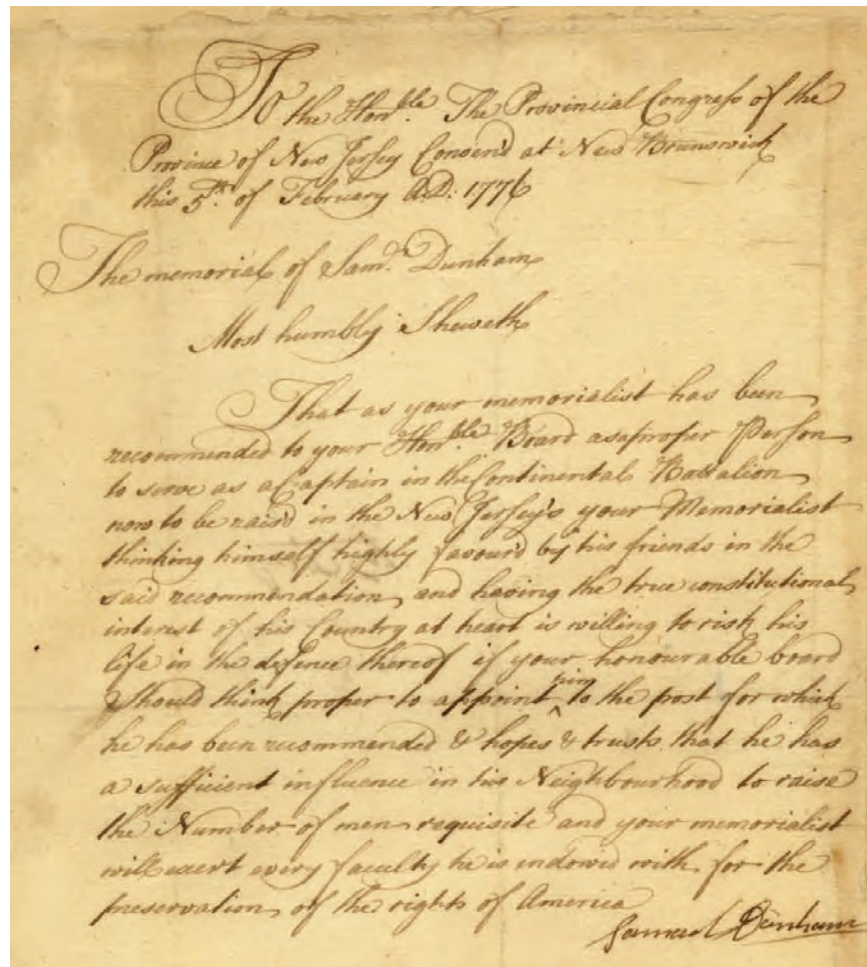 To the Hon.ble The Provincial Congress of the
Province of New Jersey Conven'd at New Brunswick
this 5th. of February A.D: 1776
The memorial of Sam.l Dunham
Most humbly Sheweth
That as your memorialist has been
recommended to your Hon.ble Board as a proper Person
to serve as a Captain in the Continental Battalion
now to be rais'd in the New Jersey's your Memorialist
thinking himself highly favour'd by his friends in the
said recommendation and having the true constitutional
interest of his Country at heart is willing to risk his
life in the defence thereof if your honourable board
Should think proper to appoint him to the post for which
he has been recommended & hopes & trusts that he has
a sufficient influence in his Neighbourhood to raise
the Number of men requisite and your memorialist
will exert every faculty he is indowed with for the
preservation of the rights of America
Samuel Dunham